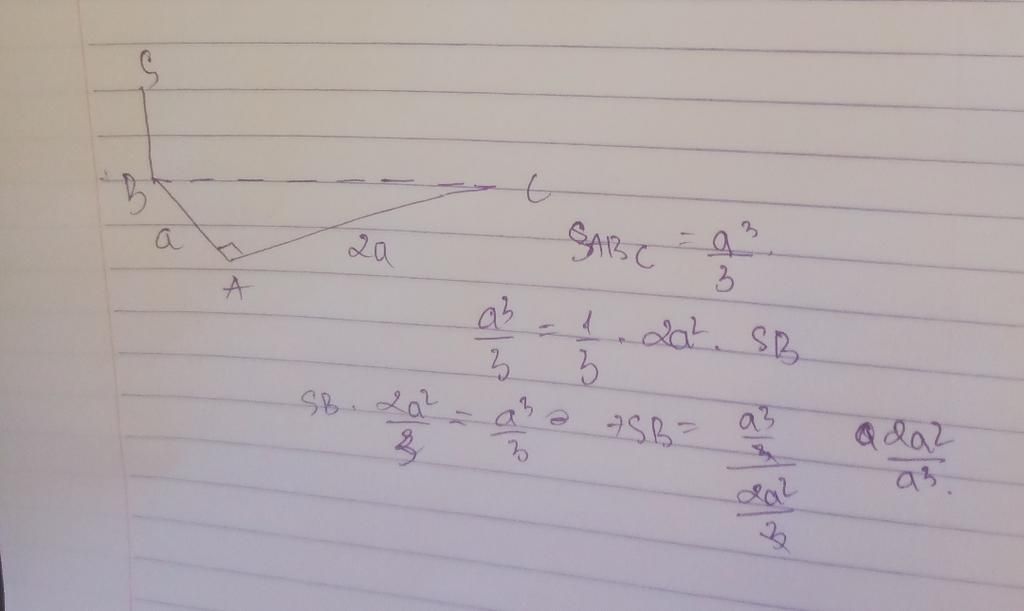 S
B
C
a
2a
A
S_ABC = a³/3.
a³/3 = 1/3 . 2a². SB
SB. 2a²/3 = a³/3 → SB = (a³/3)/(2a²/3) 2a²/a³.